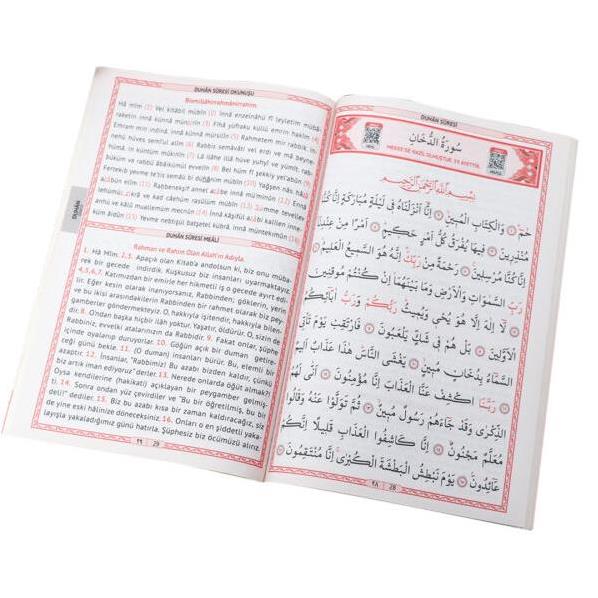 DUHÂN SÛRESİ OKUNUŞU
Bismillâhirrahmânirrahîm
Hâ mîm (1) Vel kitâbil mübîn (2) İnnâ enzelnâhü fî leyletim mübâ-
raketin innâ künnâ münzirîn (3) Fîhâ yüfraku küllü emrin hakîm (4)
Emram min indinâ, innâ künnâ mürsilîn (5) Rahmetem mir rabbik, in-
nehû hüves semîul alîm (6) Rabbi semâvâti vel erdı ve mâ beyne-
hümâ, in küntüm mûkınîn (7) Lâ ilâhe illâ hüve yuhyî ve yümît, rab-
büküm ve rabbü âbâikümül evvelîn (8) Bel hüm fî şekkiy yel'abûn (9)
Fertekıb yevme te'tis semâü bi dühânim mübîn (10) Yağşen nâs, hâzâ
azâbün elîm (11) Rabbenekşif annel azâbe innâ mü'minûn (12) Ennâ
lehümüz zikrâ ve kad câehüm rasûlüm mübîn (13) Sümme tevellev
anhü ve kâlû muallemüm mecnûn (14) İnnâ kâşifül azâbi kalîlen inne-
küm âidûn (15) Yevme nebtışül batşetel kübrâ, innâ müntekımûn (16)
DUHÂN
DUHÂN SÛRESİ MEÂLİ
Rahman ve Rahim Olan Allah'ın Adıyla.
1. Hâ Mîm. 2,3. Apaçık olan Kitab'a andolsun ki, biz onu müba-
rek bir gecede indirdik. Kuşkusuz biz insanları uyarmaktayız.
4,5,6,7. Katımızdan bir emirle her hikmetli iş o gecede ayırt edi-
lir. Eğer kesin olarak inanıyorsanız, Rabbinden; göklerin, yerin
ve bu ikisi arasındakilerin Rabbinden bir rahmet olarak biz pey-
gamberler göndermekteyiz. O, hakkıyla işitendir, hakkıyla bilen-
dir. 8. Ondan başka hiçbir ilâh yoktur. Yaşatır, öldürür. O, sizin de
Rabbiniz, evvelki atalarınızın da Rabbidir. 9. Fakat onlar, şüphe
içinde oyalanıp duruyorlar. 10. Göğün açık bir duman getire-
ceği günü bekle. 11. (O duman) insanları bürür. Bu, elemli bir
azaptır. 12. İnsanlar, "Rabbimiz! Bu azabı bizden kaldır, çünkü
biz artık iman ediyoruz" derler. 13. Nerede onlarda öğüt almak?
Oysa kendilerine (hakikati) açıklayan bir peygamber gelmiş-
ti. 14. Sonra ondan yüz çevirdiler ve "Bu bir öğretilmiş, bu bir
deli!" dediler. 15. Biz bu azabı kısa bir zaman kaldıracağız, siz
de yine eski hâlinize döneceksiniz. 16. Onları o en şiddetli yaka-
layışla yakaladığımız günü hatırla. Şüphesiz biz öcümüzü alırız.
٢٩ 29
DUHÂN SÛRESİ
سُورَةُ الدُّخَانِ
MEKKE'DE NAZİL OLMUŞTUR, 59 AYETTİR.
بِسْمِ اللّٰهِ الرَّحْمٰنِ الرَّحِيمِ
حٰمٓ ﴿١﴾ وَالْكِتَابِ الْمُبِينِ ﴿٢﴾ اِنَّٓا اَنْزَلْنَاهُ فِي لَيْلَةٍ مُبَارَكَةٍ اِنَّا كُنَّا
مُنْذِرِينَ ﴿٣﴾ فِيهَا يُفْرَقُ كُلُّ اَمْرٍ حَكِيمٍ ﴿٤﴾ اَمْرًا مِنْ عِنْدِنَا
اِنَّا كُنَّا مُرْسِلِينَ ﴿٥﴾ رَحْمَةً مِنْ رَبِّكَ اِنَّهُ هُوَ السَّمِيعُ الْعَلِيمُ ﴿٦﴾
رَبِّ السَّمٰوَاتِ وَالْاَرْضِ وَمَا بَيْنَهُمَا اِنْ كُنْتُمْ مُوقِنِينَ
﴿٧﴾ لَٓا اِلٰهَ اِلَّا هُوَ يُحْيِي وَيُمِيتُ رَبُّكُمْ وَرَبُّ اٰبَٓائِكُمُ
الْاَوَّلِينَ ﴿٨﴾ بَلْ هُمْ فِي شَكٍّ يَلْعَبُونَ ﴿٩﴾ فَارْتَقِبْ يَوْمَ تَأْتِي
السَّمَٓاءُ بِدُخَانٍ مُبِينٍ ﴿١٠﴾ يَغْشَى النَّاسَ هٰذَا عَذَابٌ اَلِيمٌ
﴿١١﴾ رَبَّنَا اكْشِفْ عَنَّا الْعَذَابَ اِنَّا مُؤْمِنُونَ ﴿١٢﴾ اَنّٰى لَهُمُ
الذِّكْرٰى وَقَدْ جَٓاءَهُمْ رَسُولٌ مُبِينٌ ﴿١٣﴾ ثُمَّ تَوَلَّوْا عَنْهُ وَقَالُوا
مُعَلَّمٌ مَجْنُونٌ ﴿١٤﴾ اِنَّا كَاشِفُوا الْعَذَابِ قَلِيلًا اِنَّكُمْ
عَٓائِدُونَ ﴿١٥﴾ يَوْمَ نَبْطِشُ الْبَطْشَةَ الْكُبْرٰى اِنَّا مُنْتَقِمُونَ ﴿١٦﴾
٢٨ 28